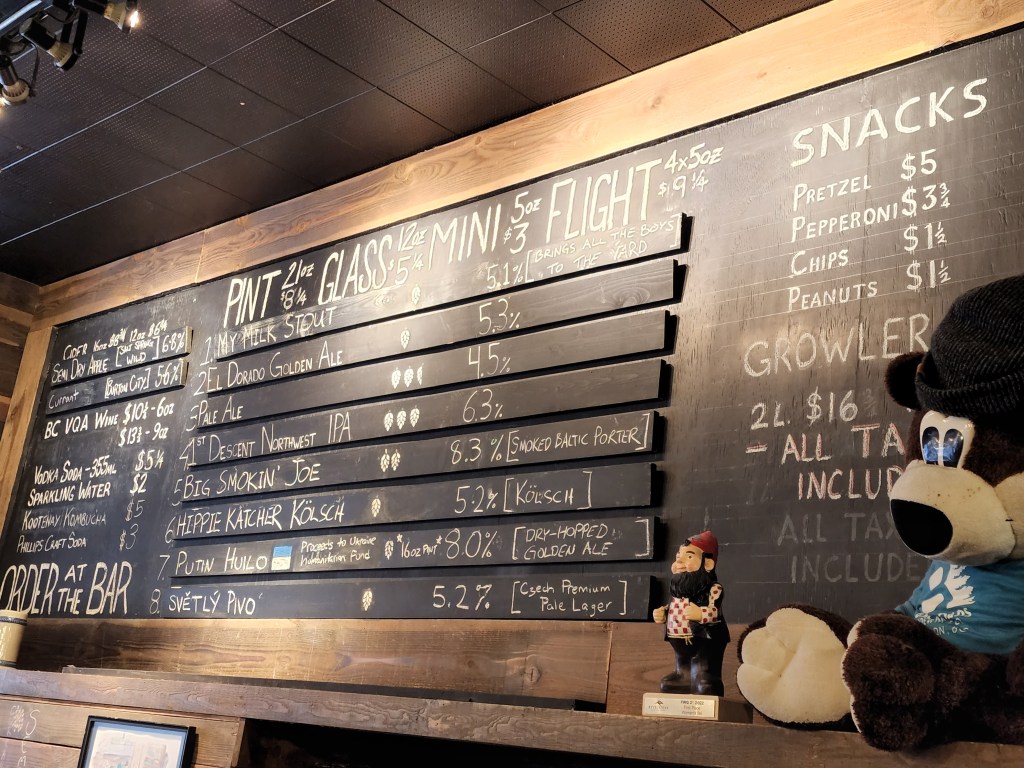 CIDER 16oz $8¾ 12oz $6¾
SEMI DRY APPLE [SALT SPRING WILD] 6.8%
Currant [BURTON CITY] 5.6%
BC VQA WINE $10½ - 6oz
$13½ - 9oz
VODKA SODA - 355mL $5¼
SPARKLING WATER $2
KOOTENAY KOMBUCHA $5
PHILLIPS CRAFT SODA $3
ORDER AT
THE BAR
PINT 21oz $8¼ GLASS 12oz $5¼ MINI 5oz $3 FLIGHT 4x5oz $9¼
1. MY MILK STOUT 5.1% [BRINGS ALL THE BOYS
TO THE YARD]
2 EL DORADO GOLDEN ALE 5.3%
3 PALE ALE 4.5%
4 1ST DESCENT NORTHWEST IPA 6.3%
5 BIG SMOKIN' JOE 8.3% [SMOKED BALTIC PORTER]
6 HIPPIE KATCHER KÖLSCH 5.2% [KÖLSCH]
7. PUTIN HUILO Proceeds to Ukraine
Humanitarian Fund *16oz PINT* 8.0% [DRY-HOPPED
GOLDEN ALE]
8. SVĚTLÝ PIVO 5.2% [Czech Premium
Pale Lager]
SNACKS
PRETZEL $5
PEPPERONI $3¾
CHIPS $1½
PEANUTS $1½
GROWLER
2L $16
- ALL TA
INCLUD
ALL TAX
INCLUDE